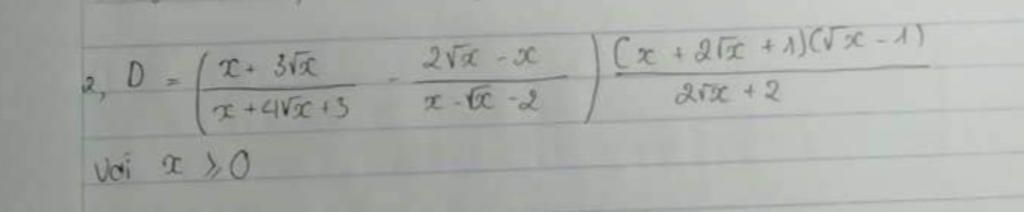 2, D = ( (x + 3√x)/(x + 4√x + 3) - (2√x - x)/(x - √x - 2) ) (x + 2√x + 1)(√x - 1)/(2√x + 2)
Với x ≥ 0